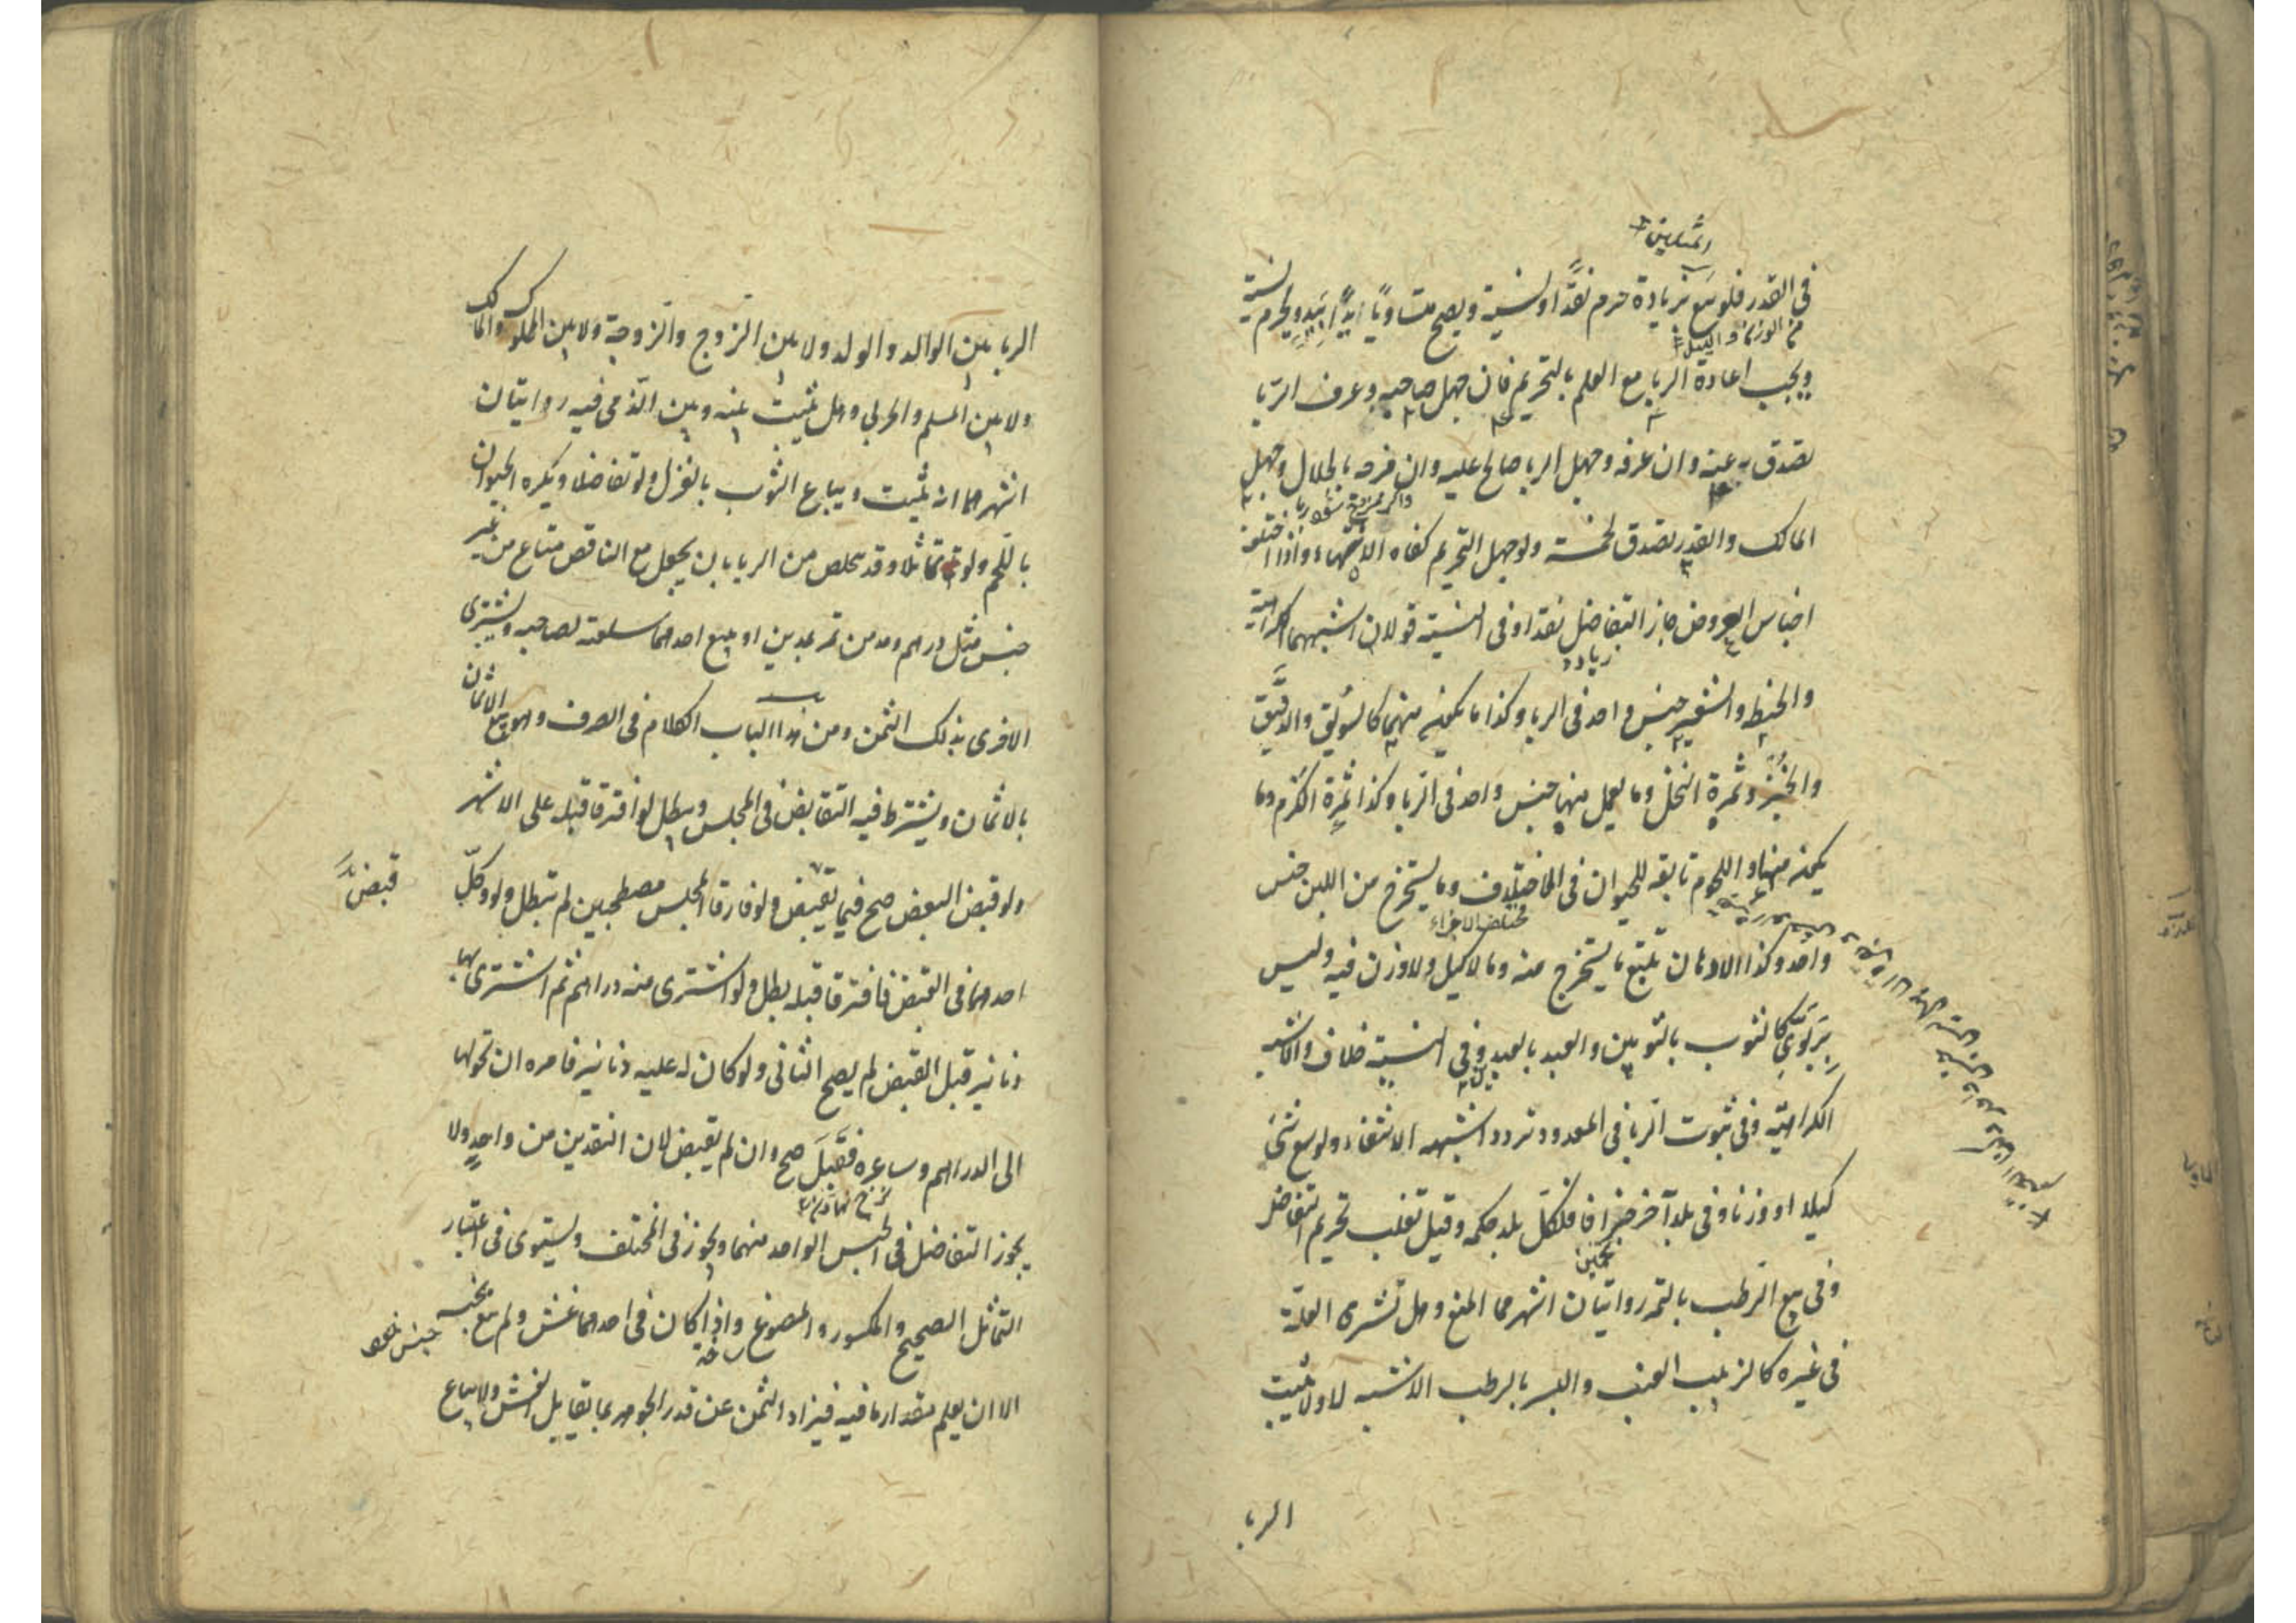 المثلين
في القدر فلو بيع بزيادة حرم نقدًا ونسية ويصح متساويًا يدًا بيد ويحرم نسية
في الوزن والكيل
ويجب اعادة الربا مع العلم بالتحريم فان جهل صاحبه وعرف الربا
تصدق به عنه وان عرفه وجهل الربا صالح عليه وان مزجه بالحلال وجهل
المالك والقدر تصدق بخمسه ولو جهل التحريم كفاه الانتهاء واذا اختلفت
اجناس العروض جاز التفاضل نقدا وفي النسية قولان اشبههما الكراهية
زيادة
والحنطة والشعير جنس واحد في الربا وكذا ما يكون منهما كالسويق والدقيق
والخبز وثمرة النخل وما يعمل منها جنس واحد في الربا وكذا ثمرة الكرم وما
يكون منها واللحوم تابعة للحيوان في الاختلاف وما يستخرج من اللبن جنس
مختلف الاجزاء
واحد وكذا الادهان تتبع ما يستخرج منه وما لا كيل ولا وزن فيه وليس
بربوي كالثوب بالثوبين والعبد بالعبدين وفي النسية خلاف والاشبه
الكراهية وفي ثبوت الربا في المعدود تردد اشبهه الانتفاء ولو بيع شئ
كيلا او وزنا وفي بلد آخر جزافا فلكل بلد حكمه وقيل تغلب تحريم التفاضل
تخمين
وفي بيع الرطب بالتمر روايتان اشهرهما المنع وهل تسري العلة
في غيره كالزبيب العنب والبسر بالرطب الاشبه لا ولا يثبت
الربا
الربا بين الوالد والولد ولا بين الزوج والزوجة ولا بين المملوك والمالك
ولا بين المسلم والحربي وهل يثبت بينه وبين الذمي فيه روايتان
اشهرهما انه يثبت ويباع الثوب بالغزل ولو تفاضلا ويكره الحيوان
باللحم ولو تماثلا وقد يتخلص من الربا بان يجعل مع الناقص متاع من غير
جنس مثل درهم ومد من تمر بمدين او يبيع احدهما سلعته لصاحبه ويشتري
الاخرى بذلك الثمن ومن هذا الباب الكلام في الصرف وهو بيع الاثمان
بالاثمان ويشترط فيه التقابض في المجلس ويبطل لو افترقا قبله على الاشهر
ولو قبض البعض صح فيما يقبض ولو فارقا المجلس مصطحبين لم تبطل ولو وكّل
قبض
احدهما في القبض فافترقا قبله بطل ولو اشترى منه دراهم ثم اشترى بها
دنانير قبل القبض لم يصح الثاني ولو كان له عليه دنانير فامره ان تحولها
الى الدراهم وساعره فقبل صح وان لم يقبض لان النقدين من واحد ولا
يجوز التفاضل في الجنس الواحد منهما ويجوز في المختلف ويستوى في اعتبار
التماثل الصحيح والمكسور والمصوغ واذا كان في احدهما غش ولم يبع بجنسه
الا ان يعلم مقدار ما فيه فيزاد الثمن عن قدر الجوهر بما يقابل الغش ولا يباع